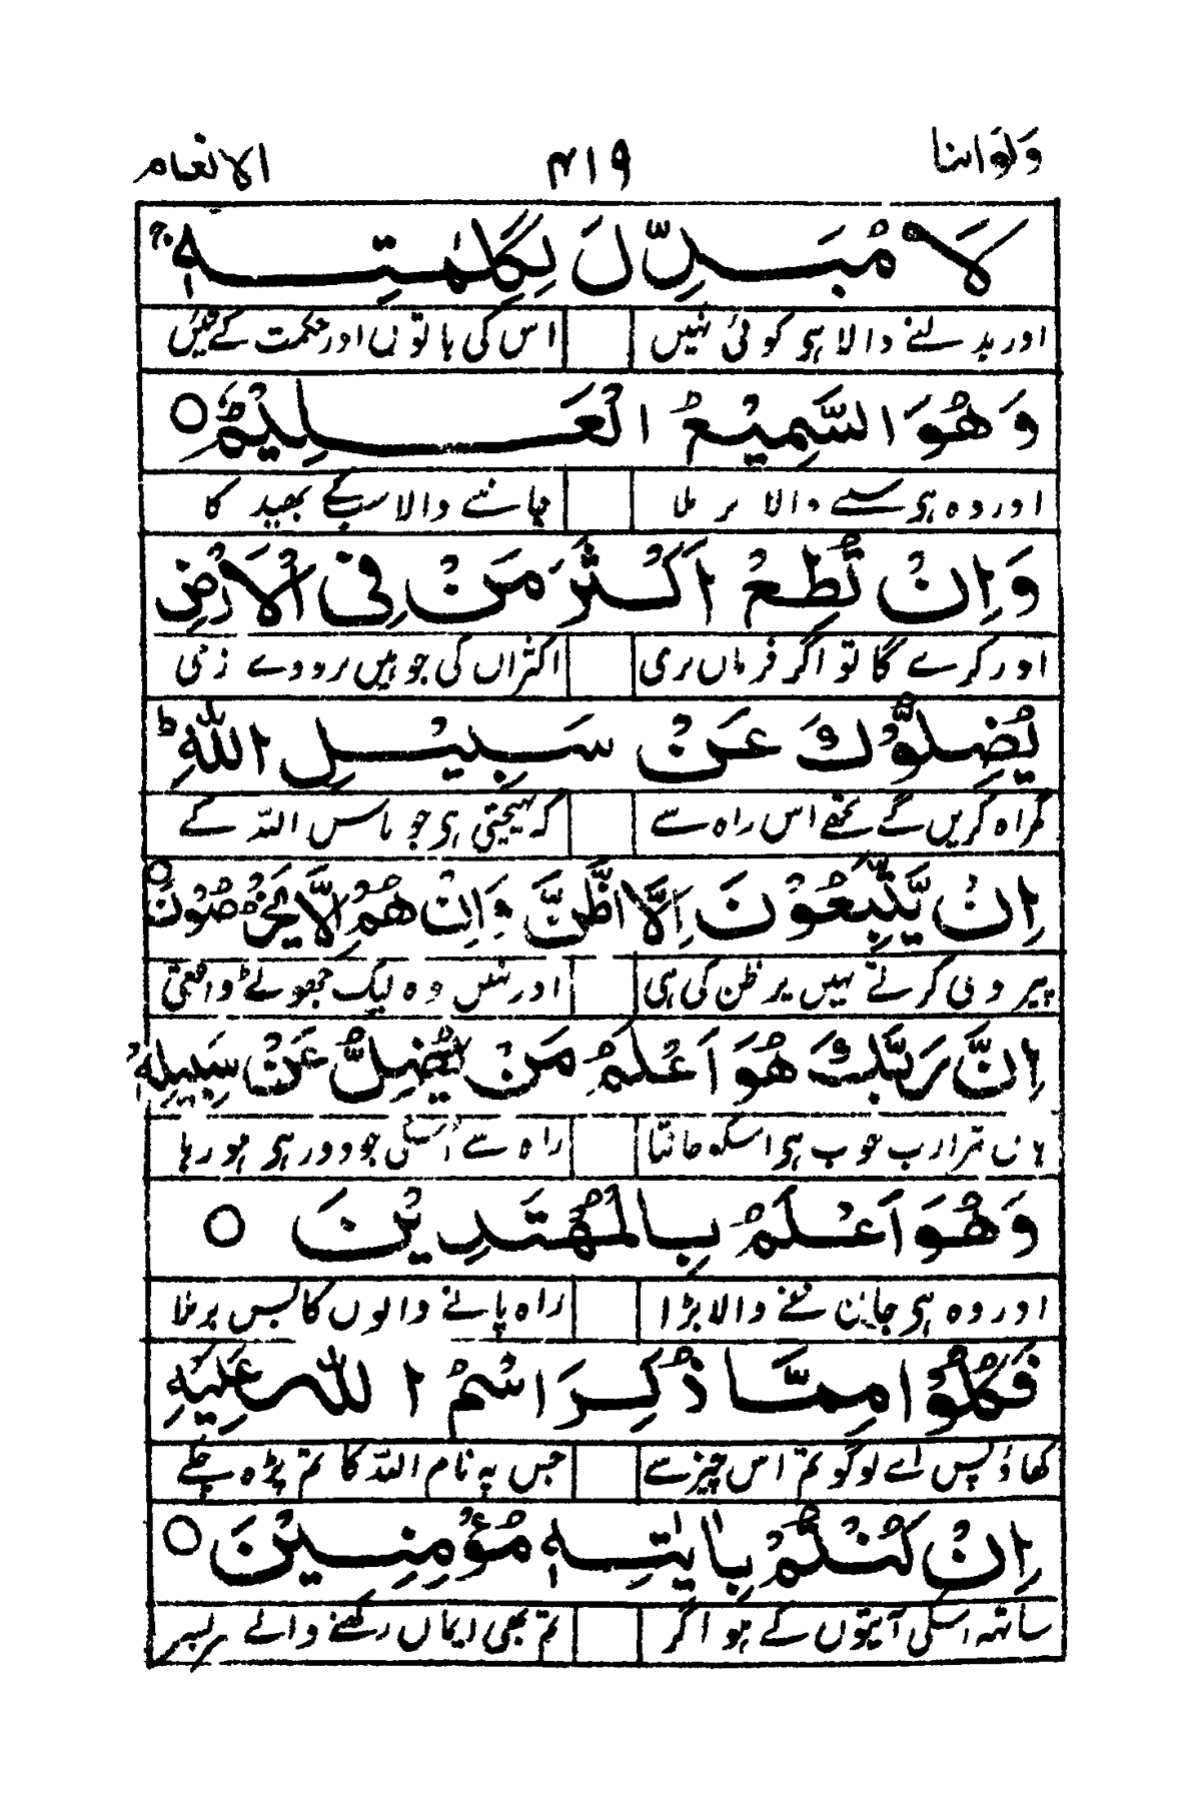 ولواننا ۴۱۹ الانعام
لَا مُبَدِّلَ لِكَلِمٰتِهٖ ج
اور بدلنے والا ہی کوئی نہیں اس کی باتوں اور حکمت کے تئیں
وَهُوَ السَّمِيْعُ الْعَلِيْمُ ○
اور وہ ہی سننے والا بر ملا جاننے والا سب کے بھید کا
وَاِنْ تُطِعْ اَكْثَرَ مَنْ فِى الْاَرْضِ
اور کرے گا تو اگر فرماں بری اکثراں کی جو ہیں بر روے زمی
يُضِلُّوْكَ عَنْ سَبِيْلِ اللّٰهِ ط
گمراہ کریں گے تجھے اس راہ سے کہ پہنچتی ہی جو پاس اللہ کے
اِنْ يَّتَّبِعُوْنَ اِلَّا الظَّنَّ وَاِنْ هُمْ اِلَّا يَخْرُصُوْنَ ○
پیروی کرتے نہیں پر ظن کی ہی اور نہیں وہ لیک جھوٹے واقعی
اِنَّ رَبَّكَ هُوَ اَعْلَمُ مَنْ يَّضِلُّ عَنْ سَبِيْلِهٖ ج
ہاں ترا رب خوب ہی اسکو جانتا راہ سے اسکی جو دور ہی ہو رہا
وَهُوَ اَعْلَمُ بِالْمُهْتَدِيْنَ ○
اور وہ ہی جاننے والا بڑا راہ پانے والوں کا بس برملا
فَكُلُوْا مِمَّا ذُكِرَ اسْمُ اللّٰهِ عَلَيْهِ
کھاؤ پس اے لوگو تم اس چیز سے جس پہ نام اللہ کا تم پڑھ چکے
اِنْ كُنْتُمْ بِاٰيٰتِهٖ مُؤْمِنِيْنَ ○
ساتھ اسکی آیتوں کے ہو اگر تم بھی ایماں رکھنے والے سربسر